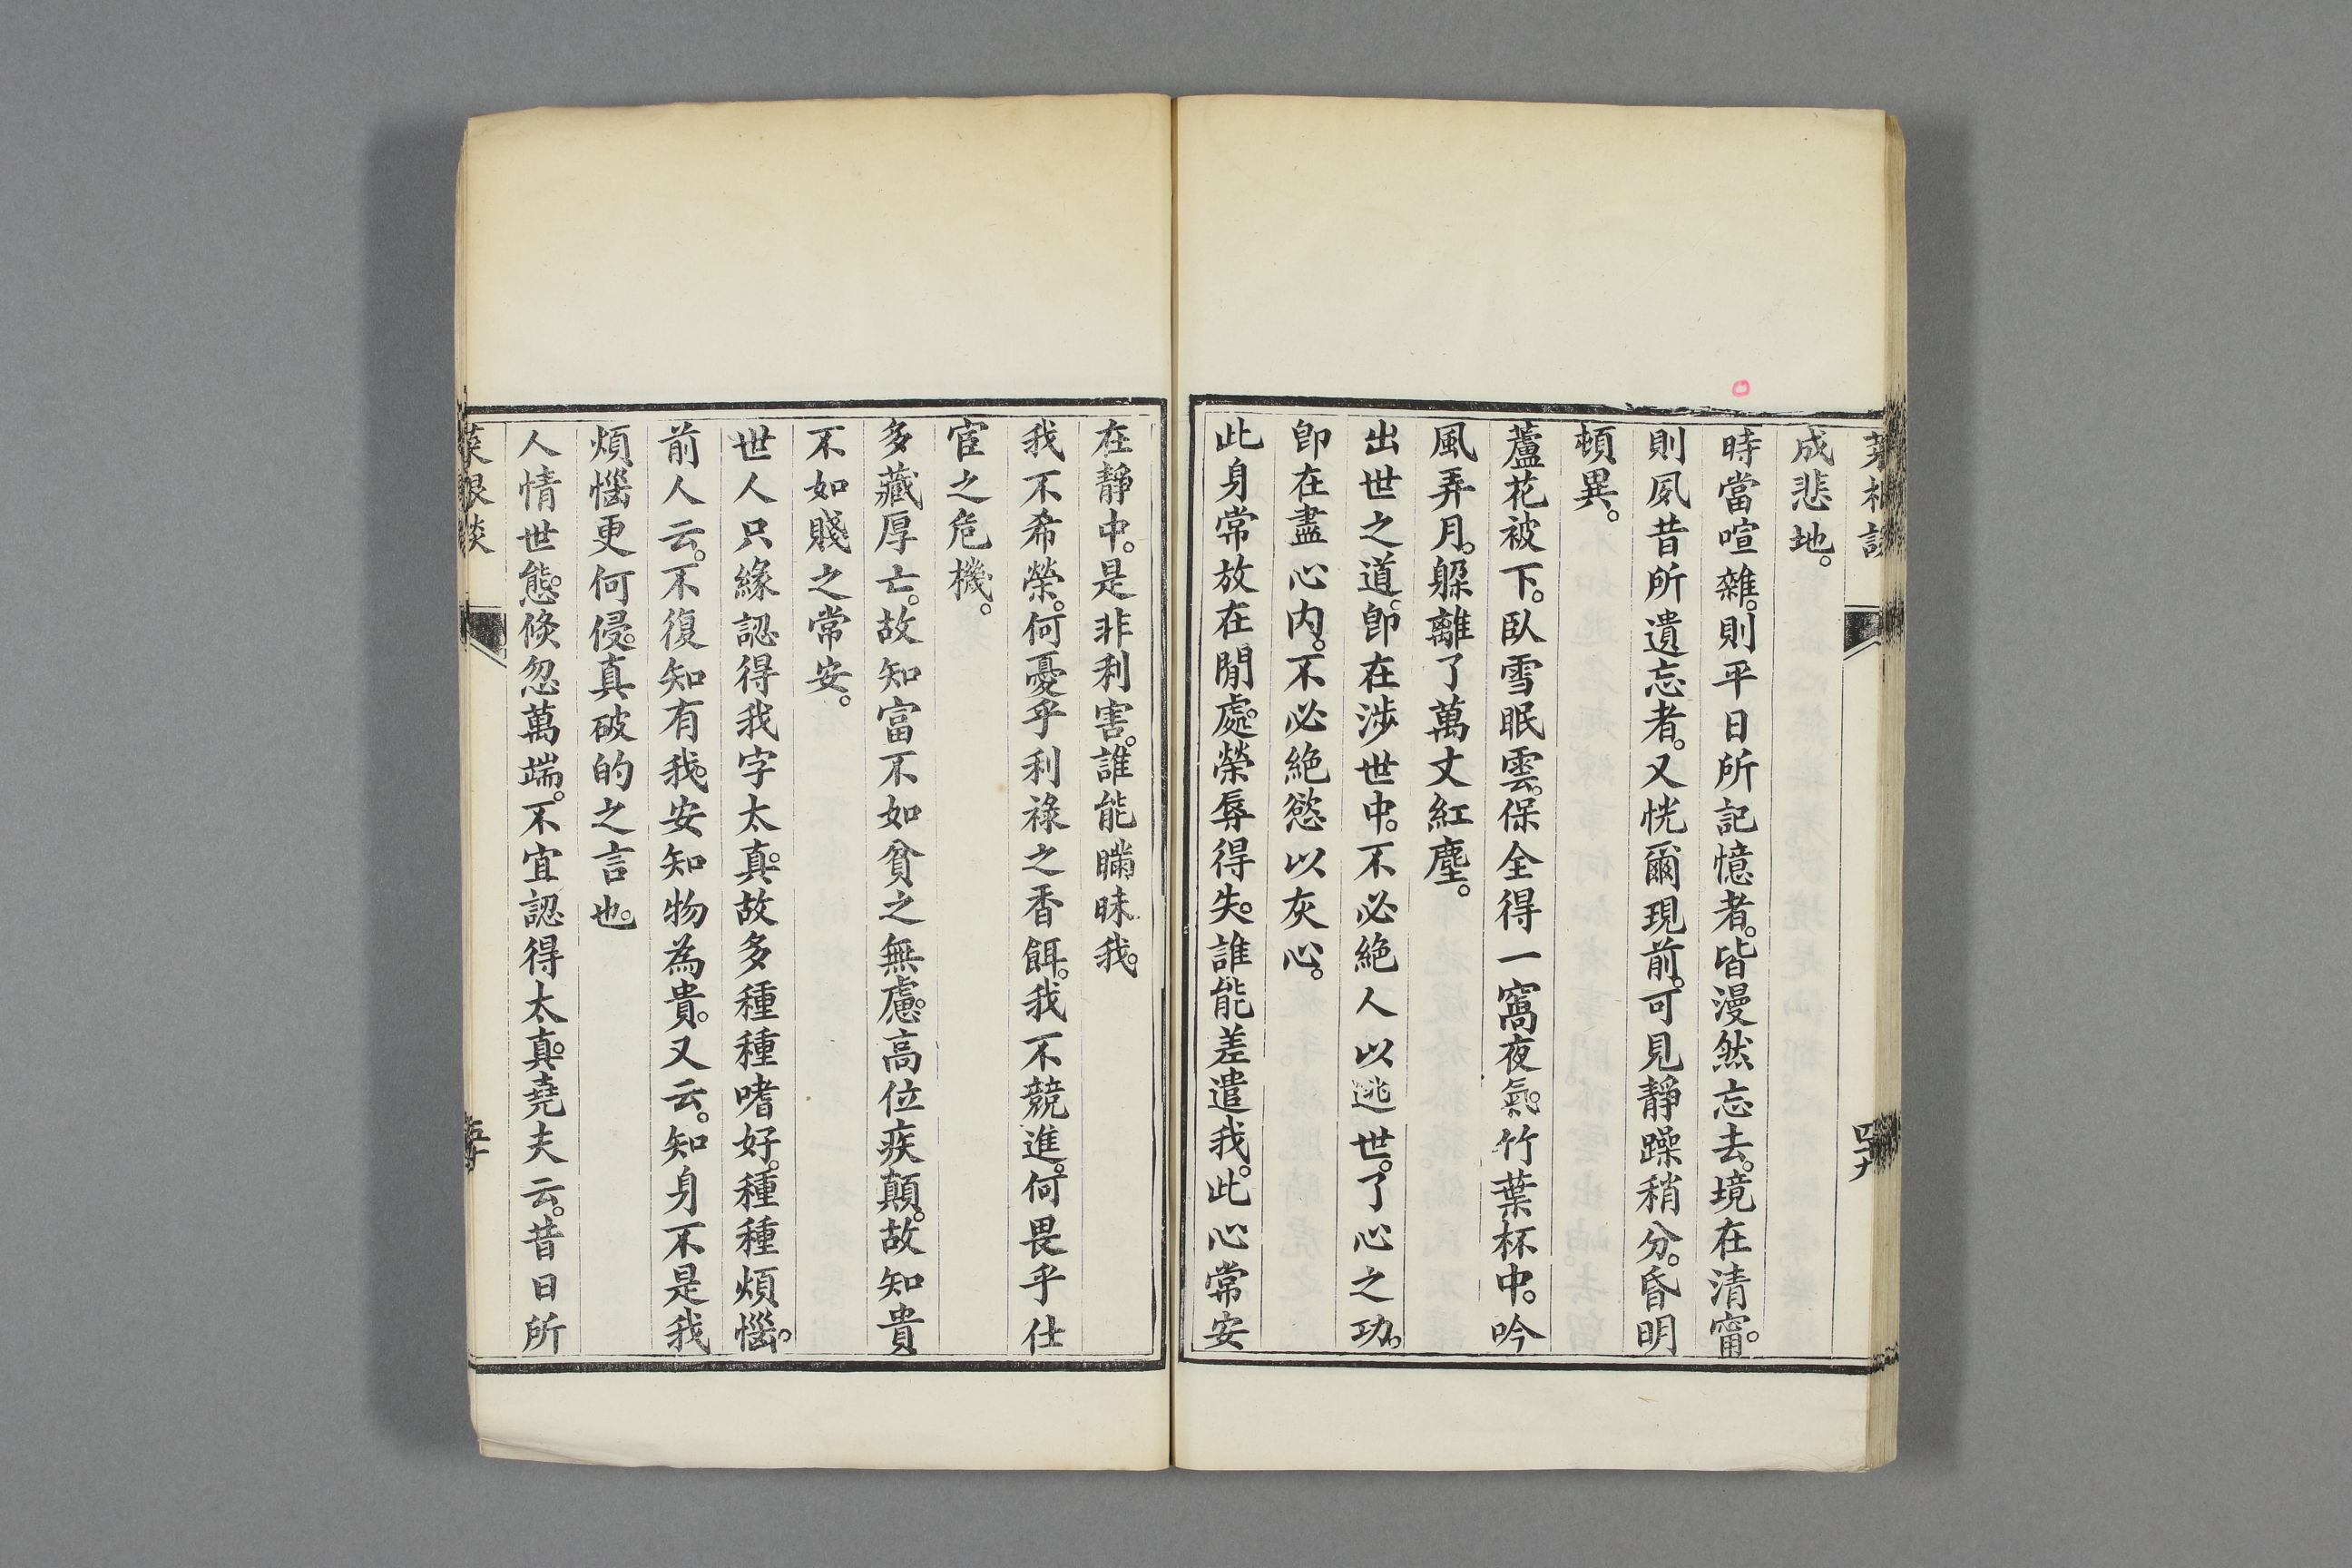 成悲地。
時當喧雜。則平日所記憶者。皆漫然忘去。境在清寗。
則夙昔所遺忘者。又恍爾現前。可見靜躁稍分。昏明
頓異。
蘆花被下。臥雪眠雲。保全得一窩夜氣。竹葉杯中。吟
風弄月。躲離了萬丈紅塵。
出世之道。卽在涉世中。不必絕人以逃世。了心之功。
卽在盡心內。不必絕慾以灰心。
此身常放在閒處。榮辱得失。誰能差遣我。此心常安
在靜中。是非利害。誰能瞞昧我。
我不希榮。何憂乎利祿之香餌。我不競進。何畏乎仕
宦之危機。
多藏厚亡。故知富不如貧之無慮。高位疾顛。故知貴
不如賤之常安。
世人只緣認得我字太真。故多種種嗜好。種種煩惱。
前人云。不復知有我。安知物為貴。又云。知身不是我
煩惱更何侵。真破的之言也。
人情世態。倐忽萬端。不宜認得太真。堯夫云。昔日所
菜根談